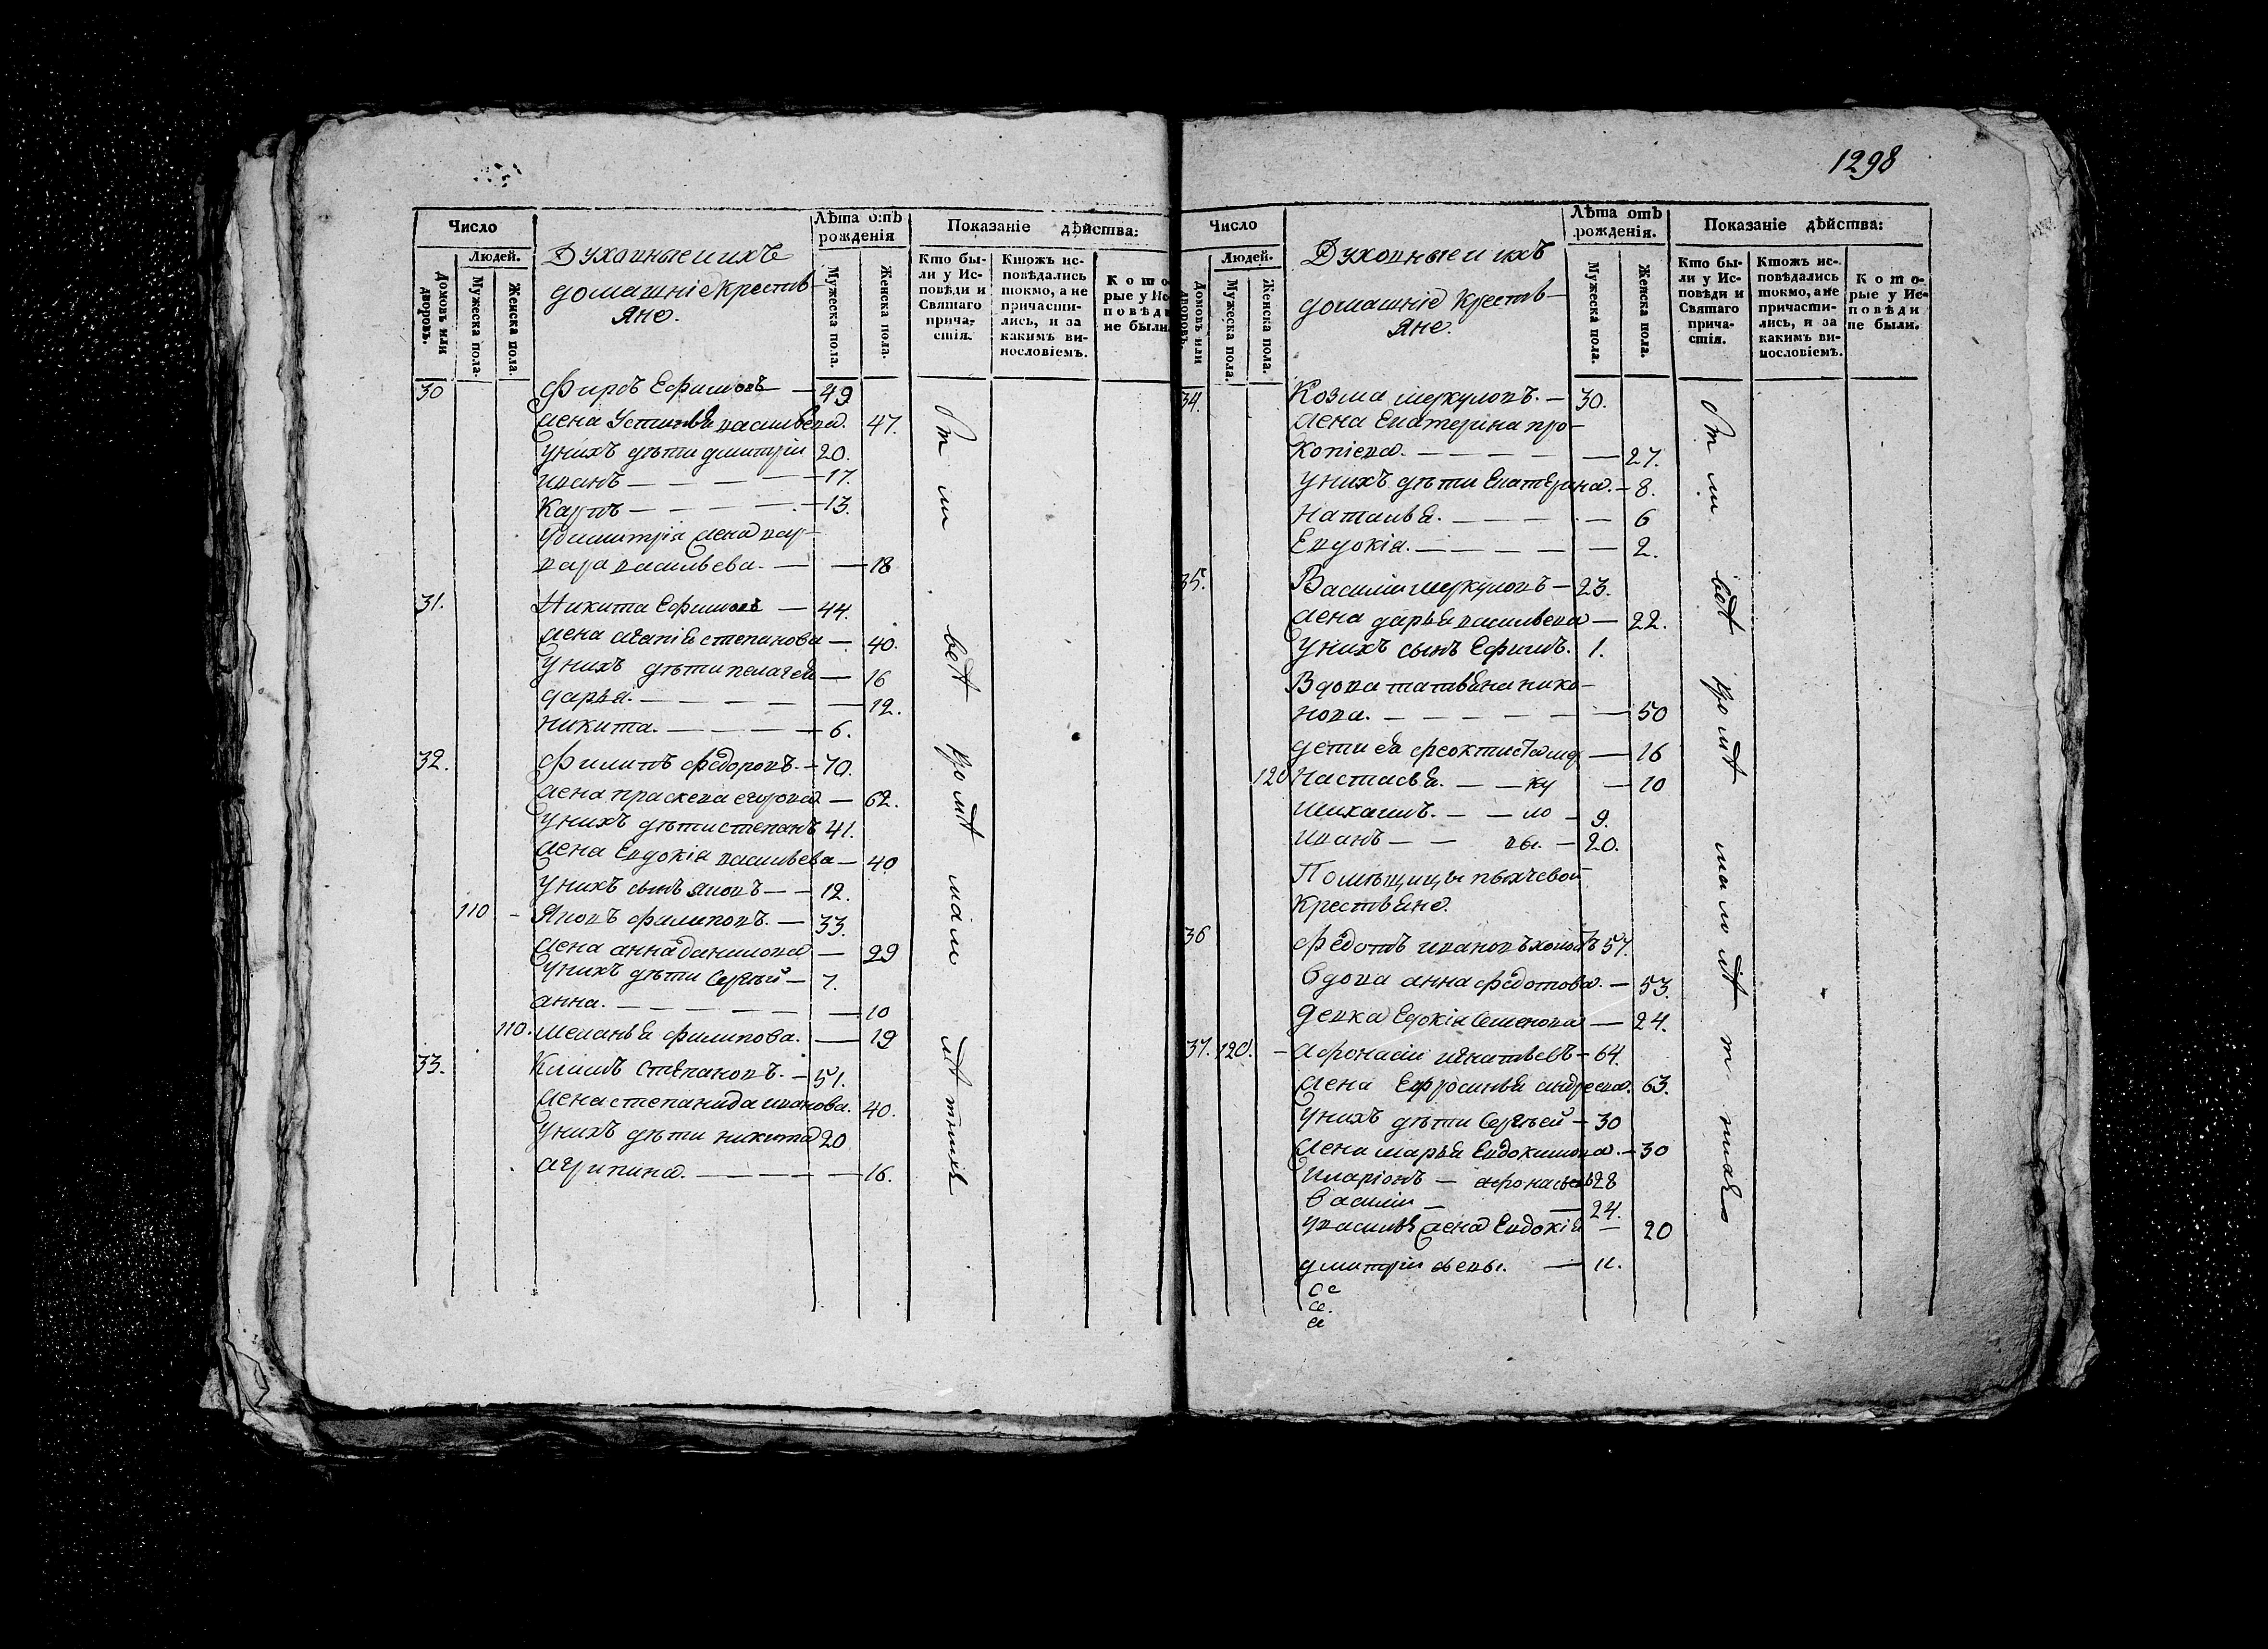 Число
Людей.
Домовъ или дворовъ.
Мужеска пола.
Женска пола.
Духовные и ихъ
домашніе крестья-
яне.
Лѣта отъ рожденія
Мужеска пола.
Женска пола.
Показаніе дѣйства:
Кто были у Исповѣди и Святаго причастія.
Ктожъ исповѣдались токмо, а не причастились, и за какимъ винословіемъ.
Которые у Исповѣди не были.
30 Фирсъ Ефимовъ — 49.
жена Устинья васильева. 47.
у нихъ дѣти дмитріи 20.
иванъ — 17.
Карпъ — 13.
У дмитрія жена вар-
вара васильева. — 18
31. Никита Ефимовъ — 44.
жена агапія степанова — 40.
у нихъ дѣти пелагея — 16
дарья. — 12.
никита. — 6.
32. Филипъ федоровъ. — 70.
жена праскева егорова — 62.
у нихъ дѣти степанъ 41.
жена Евдокія васильева — 40
у нихъ сынъ яковъ — 12.
110 — Яковъ филиповъ. — 33.
жена анна данилова — 29
у нихъ дѣти Сергѣй — 7.
анна. — 10
110. меланья филипова. — 19
33. Климъ Степановъ. — 51.
жена степанида иванова. 40.
у нихъ дѣти никита 20
агрипина. — 16.
1298
Число
Людей.
Домовъ или дворовъ.
Мужеска пола.
Женска пола.
Духовные и ихъ
домашніе Кресть-
яне.
Лѣта отъ рожденія.
Мужеска пола.
Женска пола.
Показаніе дѣйства:
Кто были у Исповѣди и Святаго причастія.
Ктожъ исповѣдались токмо, а не причастились, и за какимъ винословіемъ.
Которые у Исповѣди не были.
34. Козма меркуловъ. — 30.
жена Екатерина про-
копіева. — 27.
у нихъ дѣти Екатерина. — 8.
Наталья. — 6
Евдокія. — 2.
35. Василіи меркуловъ — 23.
жена дарья васильева — 22.
у нихъ сынъ Ефимъ. 1.
Вдова татьяна нико-
нова. — 50
дети ея феоктиста мер — 16
120 Настасья. — ку — 10
михаилъ. — ло — 9.
иванъ — вы. — 20.
Помѣщицы
Крестьяне.
36 федотъ ивановъ 57.
вдова анна федотова. — 53.
девка Едокія Семенова — 24.
37. 120. — афонасіи игнатьевъ — 64.
жена Ефросинья андреева. 63.
у нихъ дѣти Сергѣей — 30
жена марья Евдокимова. — 30
иларіонъ — афонасьевъ 28
василіи — 24.
у василья жена Евдокія — 20
дмитріи — 11.